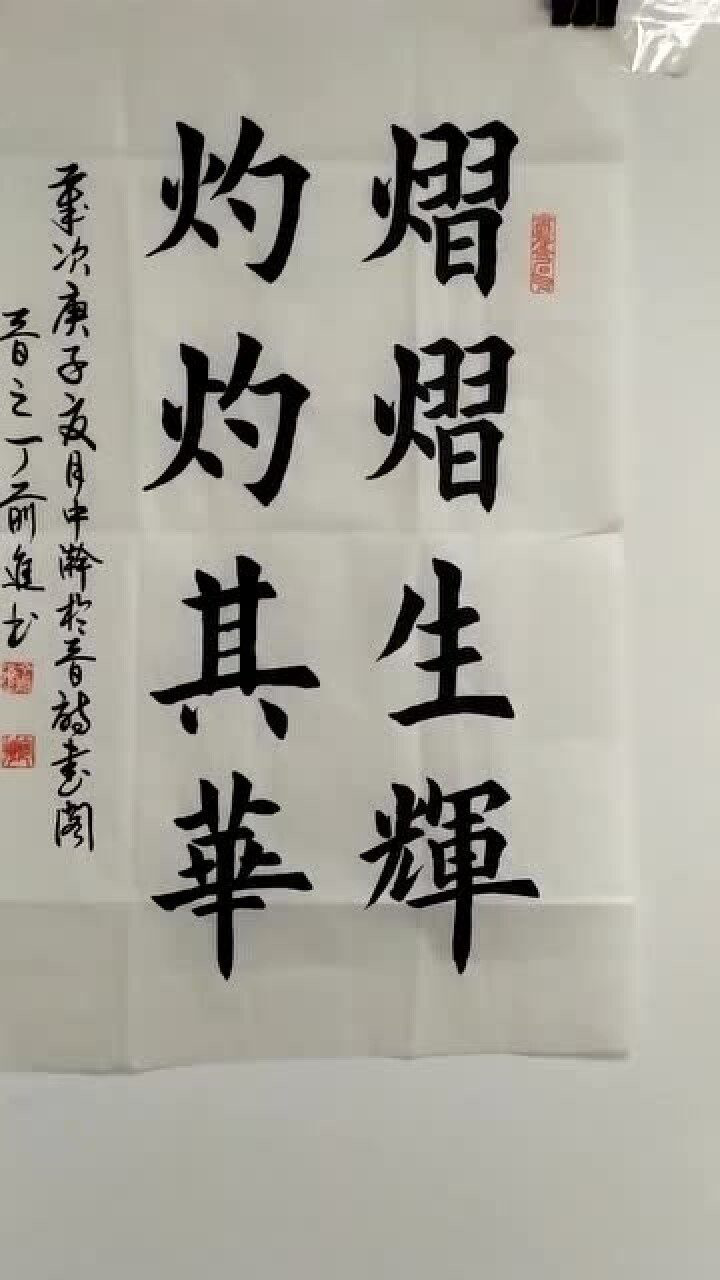 熠熠生輝
灼灼其華
歲次庚子夏月中澣於晉詩書閣
晉之丁前進书